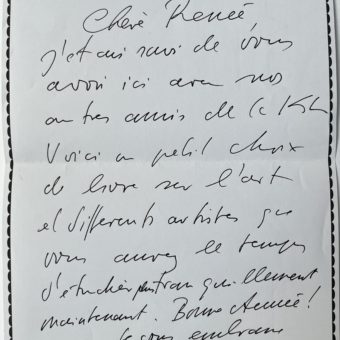 Chère Renée,
j'étais ravi de vous
avoir ici avec nos
autres amis de la
Voici un petit choix
de livre sur l'art
et différents artistes que
vous aurez le temps
d'étudier plus tranquillement
maintenant. Bonne Année!
Je vous embrasse